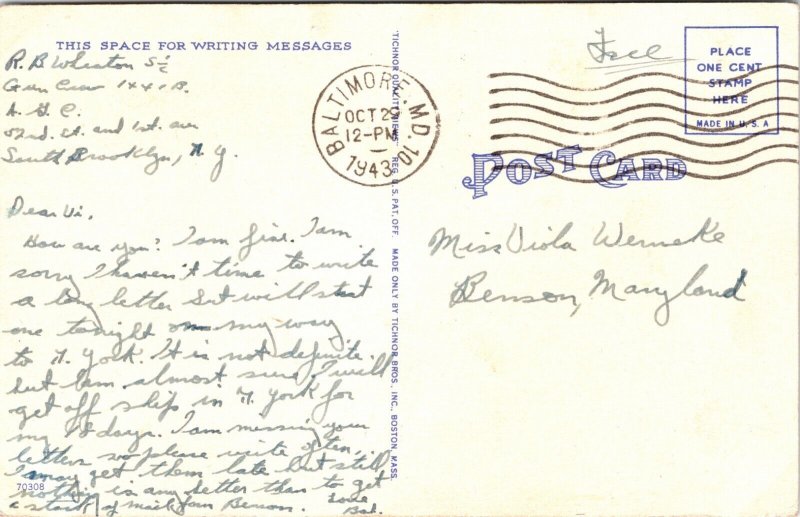 THIS SPACE FOR WRITING MESSAGES
R. B Wheaton S 1/c
Gun Crew 1441 B.
A. G. C.
52nd. St. and 1st. ave
South Brooklyn, N. Y.
Dear Vi,
How are you? I am fine. I am
sorry I haven't time to write
a long letter but will start
one tonight on my way
to N. York. It is not definite.
but I am almost sure I will
get off ship in N. York for
my 18 days. I am missing your
letters so please write often,
I may get them late but still
nothing is any better than to get
a stack of mail from Benson. Love
Bob.
70308
TICHNOR QUALITY VIEWS REG. U.S. PAT. OFF. MADE ONLY BY TICHNOR BROS., INC., BOSTON, MASS.
BALTIMORE, MD. 10
OCT 29
12-PM
1943
Free
PLACE
ONE CENT
STAMP
HERE
MADE IN U. S. A
POST CARD
Miss Viola Werneke
Benson, Maryland